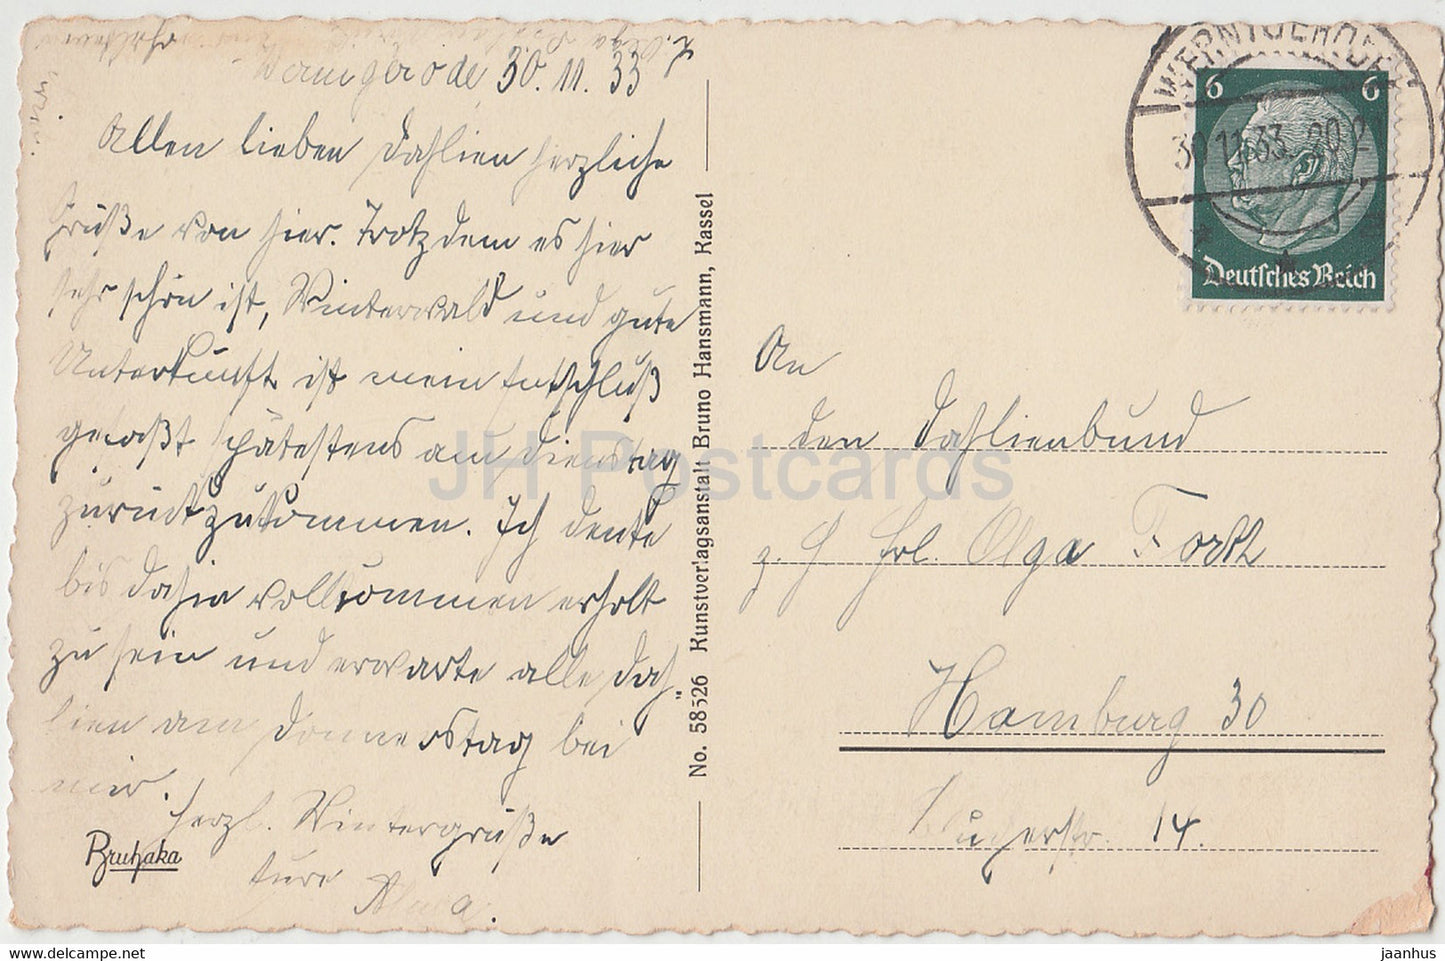 Wernigerode 30.11.33
Allen lieben Dahlien herzliche
Grüße von hier. Trotzdem es hier
sehr schön ist, Winterwald und gute
Unterkunft ist mein Entschluß
gefaßt spätestens am Dienstag
zurückzukommen. Ich denke
bis dahin vollkommen erholt
zu sein und erwarte alle Dah„
lien am Donnerstag bei
mir.
Herzl. Wintergrüße
Eure
Bruhaka
No. 58526 Kunstverlagsanstalt Bruno Hansmann, Kassel
WERNIGERODE
30.11.33. 20-21
6 6
Deutsches Reich
An
den Dahlienbund
z. H Frl. Olga
Hamburg 30
14.
JH Postcards
HipPostcard.com
jaanhus